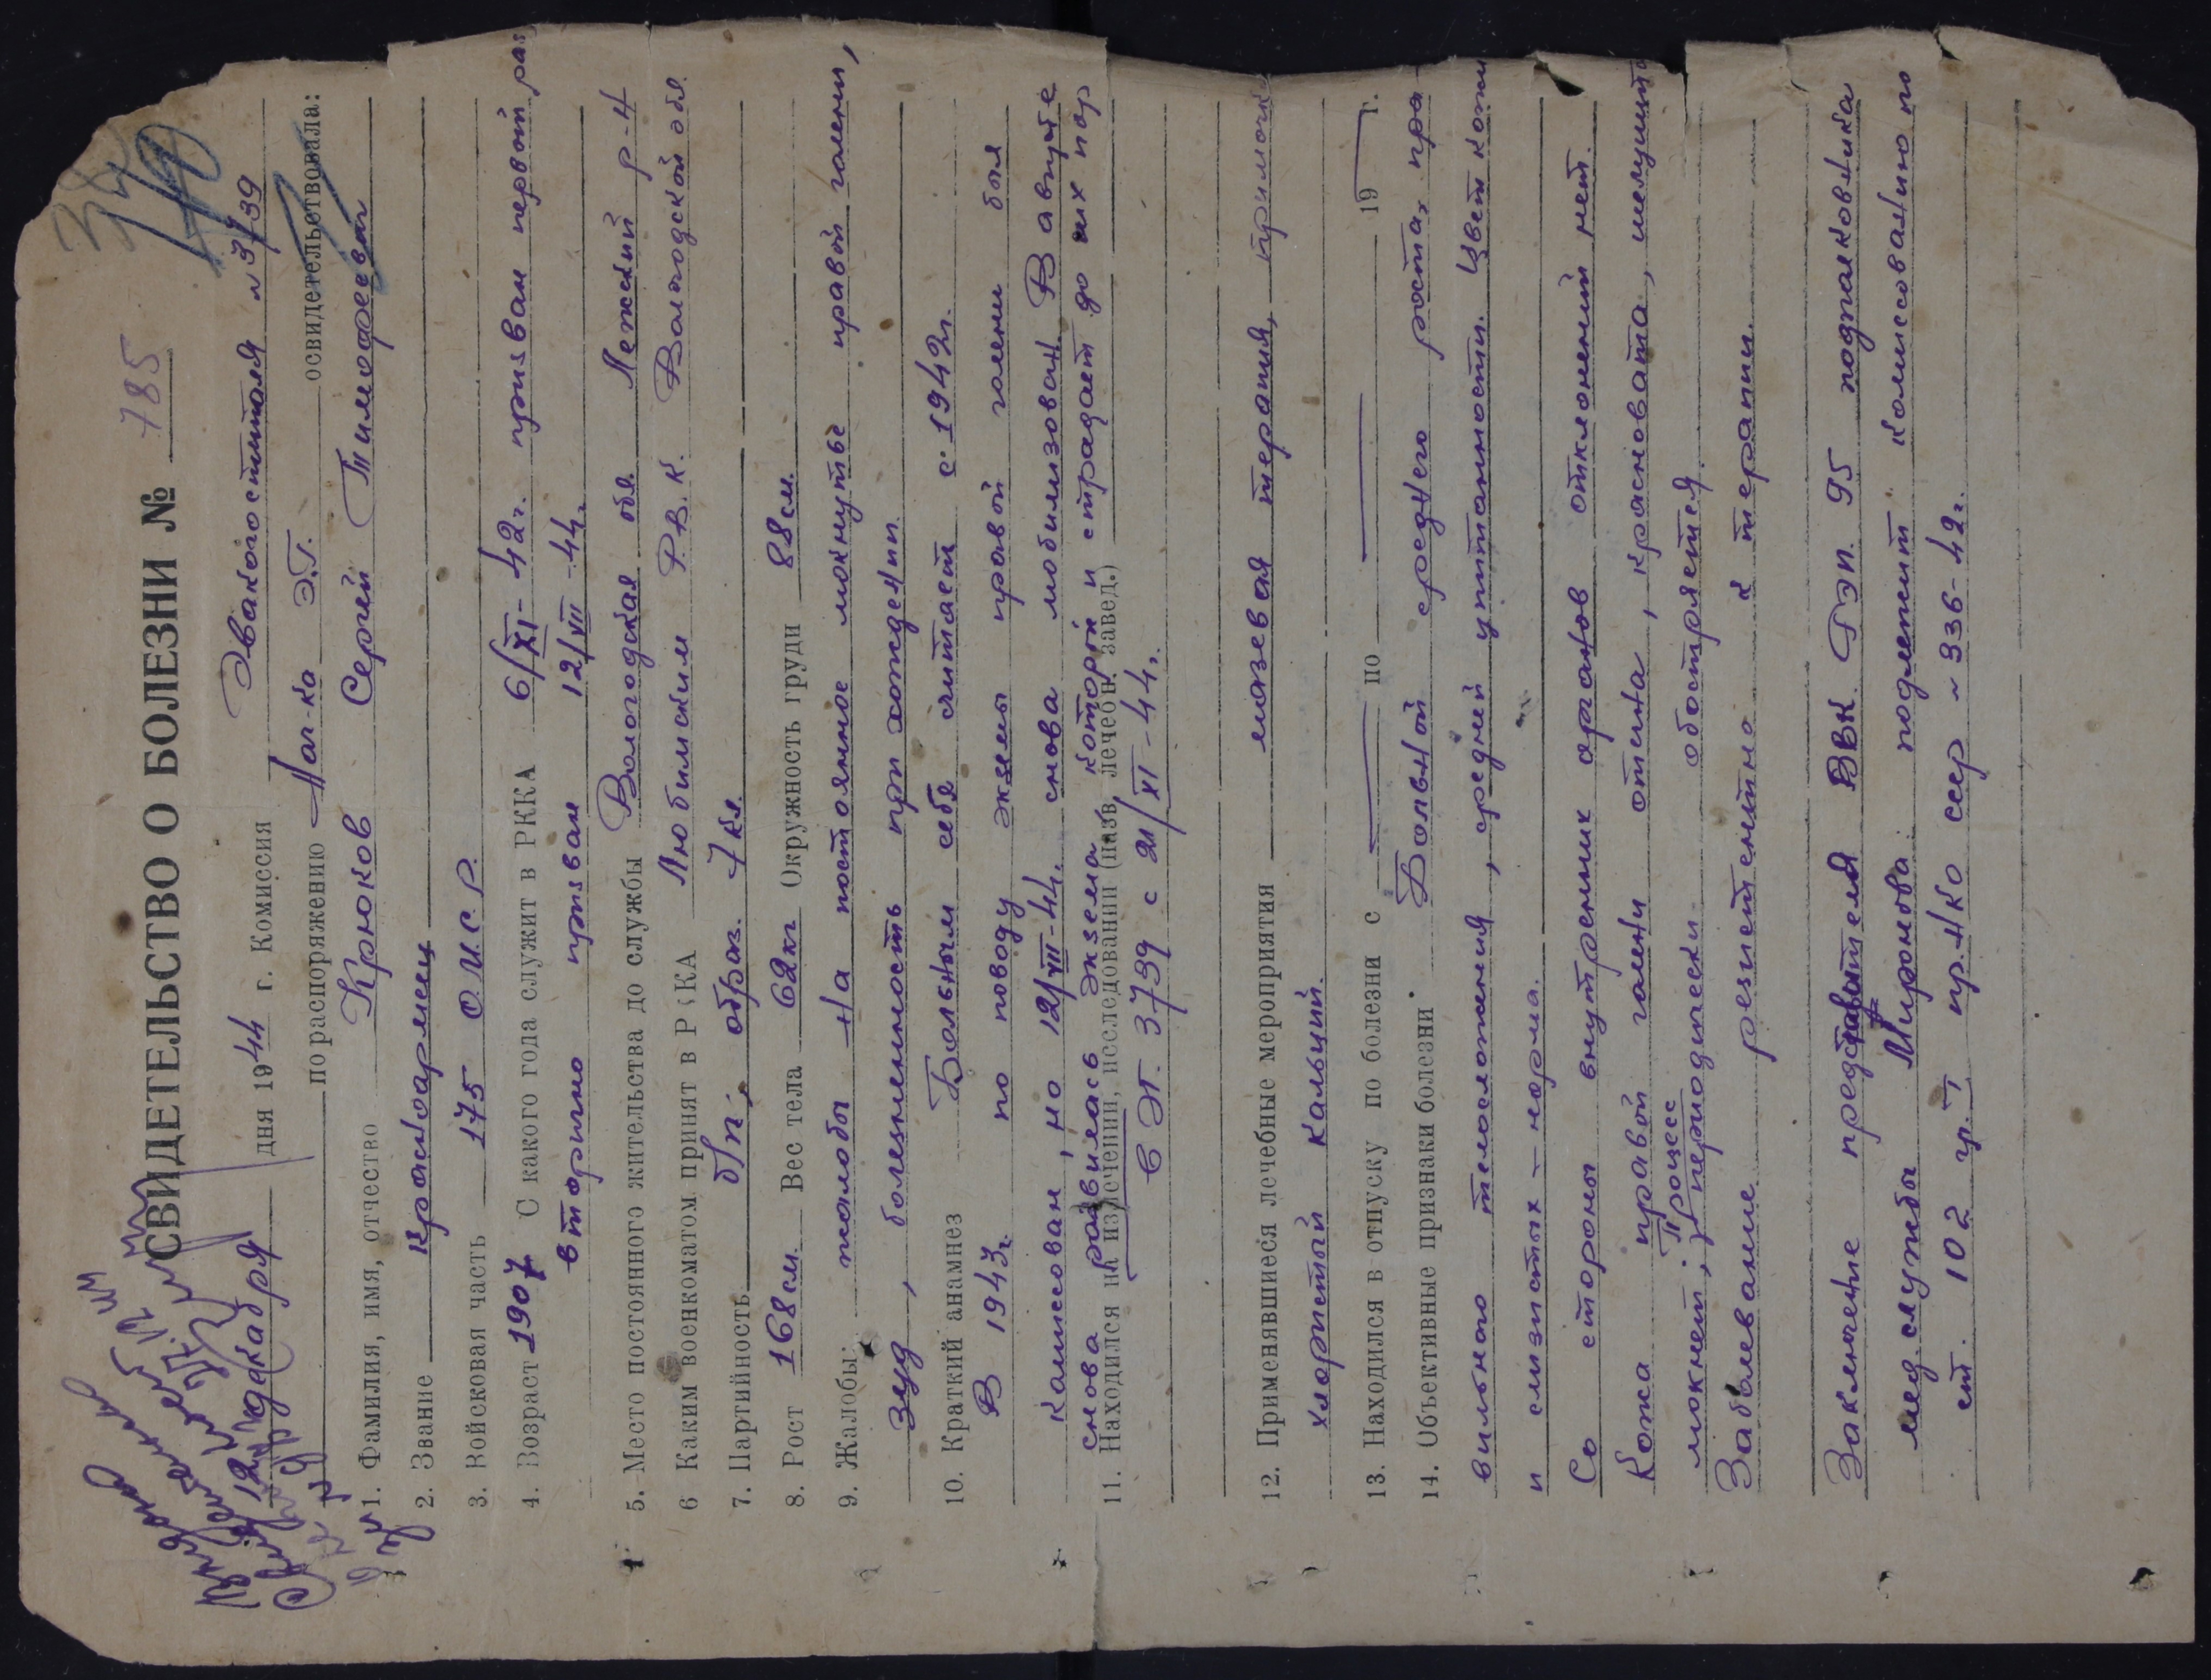 СВИДЕТЕЛЬСТВО О БОЛЕЗНИ № 785
12 декабря дня 1944 г. Комиссия Эвакогоспиталя №3739
по распоряжению Нач-ка Э.Г. освидетельствовала:
1. Фамилия, имя, отчество Крюков Сергей Тимофеевич
2. Звание красноармеец
3. Войсковая часть 175 О.М.С.Р.
4. Возраст 1907 С какого года служит в РККА 6/XI-42г. призван первый раз
вторично призван 12/VII-44.
5. Место постоянного жительства до службы Вологодская обл. Лежский р-н
6 Каким военкоматом принят в РККА Любимским Р.В.К. Вологодской обл.
7. Партийность б/п, образ. 7 кл.
8. Рост 168см. Вес тела 62кг Окружность груди 88см.
9. Жалобы: жалобы на постоянное мокнутье правой голени,
зуд, болезненность при хождении.
10. Краткий анамнез Больным себя считает с 1942г.
В 1943г. по поводу экземы правой голени был
комиссован, но 12/VIII-44. снова мобилизован. В августе
снова развилась экзема, которой и страдает до сих пор
11. Находился на излечении, исследовании (назв. лечебн. завед.)
в ЭГ. 3739 с 21/XI-44.
12. Применявшиеся лечебные мероприятия мазевая терапия, примочки
хлористый кальций.
13. Находился в отпуску по болезни с по 19 г.
14. Объективные признаки болезни Больной среднего роста, пра-
вильного телосложения, средней упитанности. Цвет кожи
и слизистых - норма.
Со стороны внутренних органов отклонений нет.
Кожа правой голени отечна, красновата, шелушится
мокнет; процесс периодически обостряется.
Заболевание резистентно к терапии.
Заключение представителя ВВК РЭП. 95 подполковника
мед.службы Миронова: подлежит комиссованию по
ст. 102 гр. I пр.НКО СССР №336-42г.